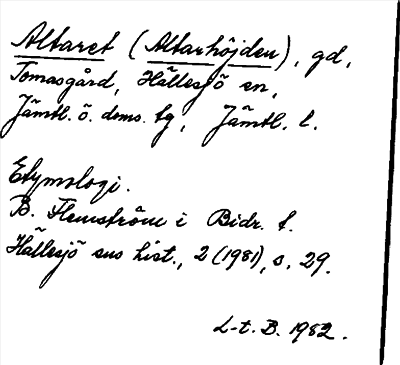 Altaret (Altarhöjden), gd,
Tomasgård, Hällesjö sn,
Jämtl. ö. doms. tg, Jämtl. l.
Etymologi.
B. Flemström i Bidr. t.
Hällesjö sns hist., 2 (1981), s. 29.
L-t. B. 1982.